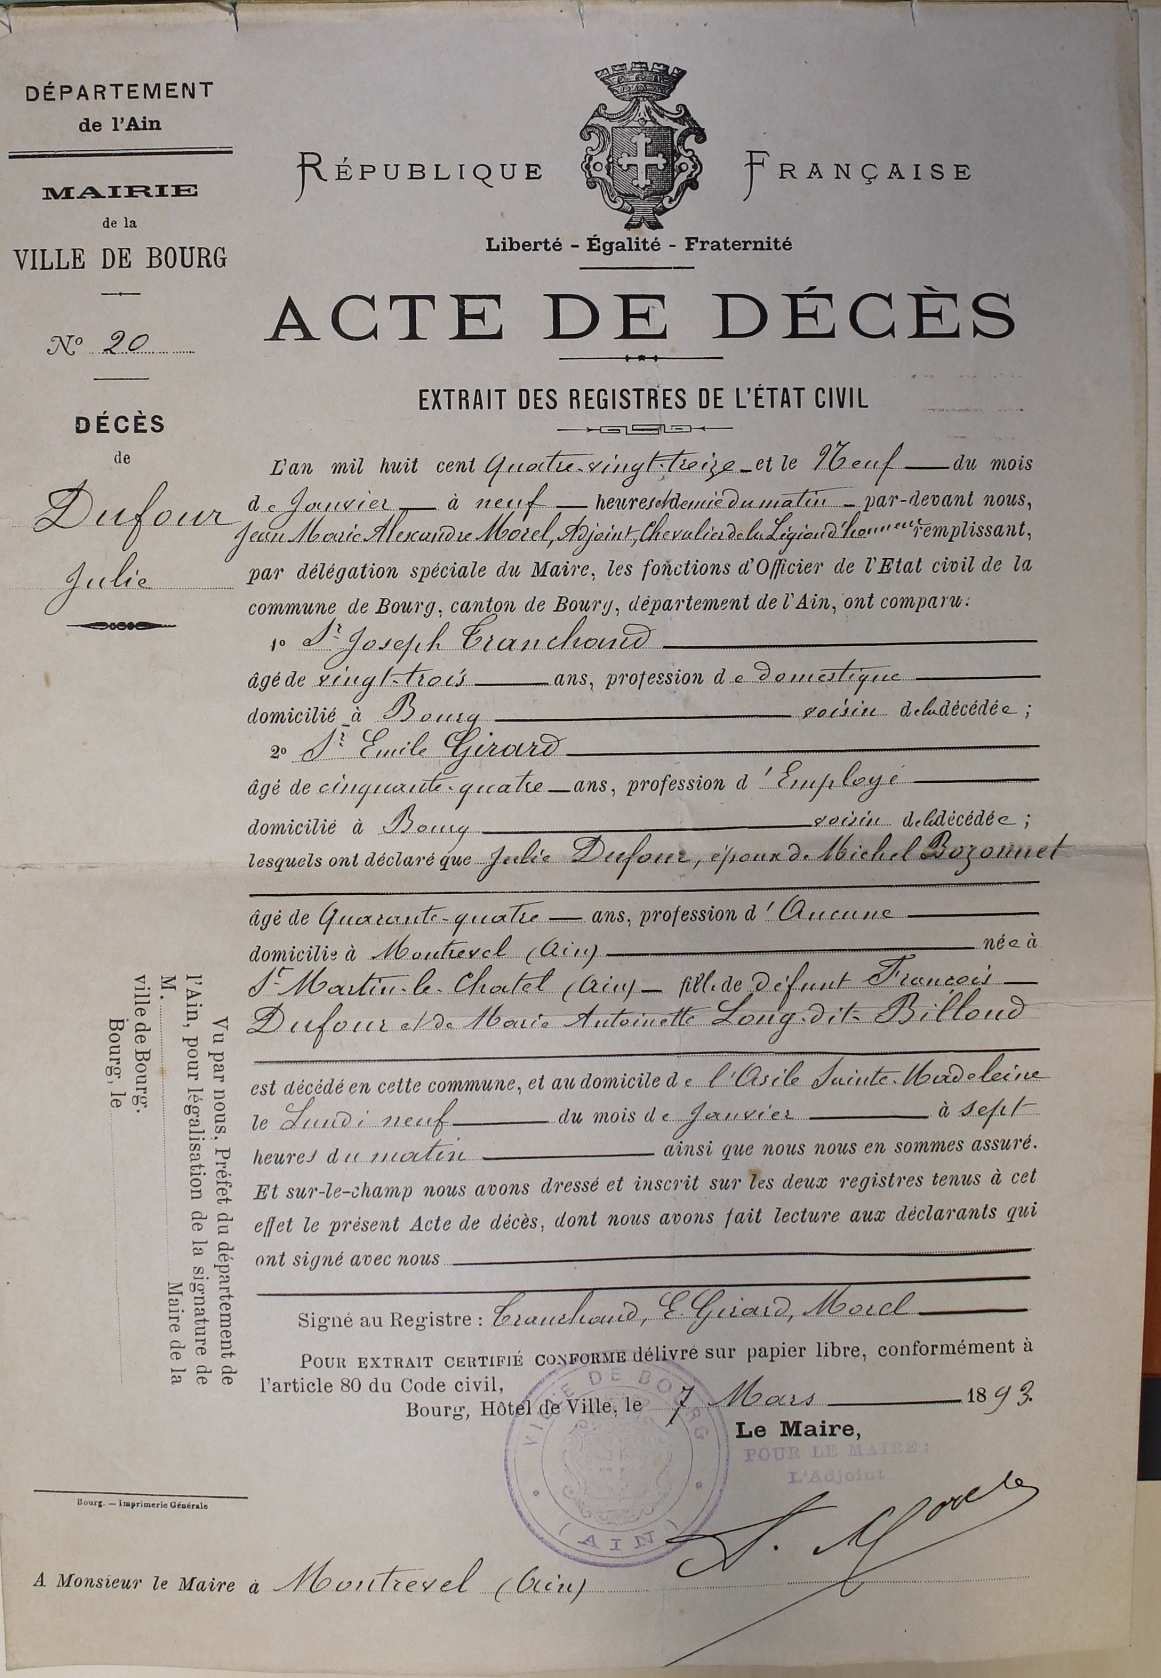 DÉPARTEMENT
de l'Ain
MAIRIE
de la
VILLE DE BOURG
No 20
DÉCÈS
de
Dufour
Julie
RÉPUBLIQUE FRANÇAISE
Liberté - Égalité - Fraternité
ACTE DE DÉCÈS
EXTRAIT DES REGISTRES DE L'ÉTAT CIVIL
L'an mil huit cent Quatre-vingt-treize et le Neuf du mois
de Janvier à neuf heures et demie du matin par-devant nous,
Jean Marie Alexandre Morel, Adjoint, Chevalier de la Légion d'honneur remplissant,
par délégation spéciale du Maire, les fonctions d'Officier de l'Etat civil de la
commune de Bourg, canton de Bourg, département de l'Ain, ont comparu:
1o Sr Joseph Tranchand
âgé de vingt-trois ans, profession de domestique
domicilié à Bourg voisin de la décédée;
2o Sr Emile Girard
âgé de cinquante-quatre ans, profession d'Employé
domicilié à Bourg voisin de la décédée;
lesquels ont déclaré que Julie Dufour, époux de Michel Bozonnet
âgé de Quarante-quatre ans, profession d'Aucune
domicilié à Montrevel (Ain) née à
St Martin-le-Chatel (Ain) fille de défunt François
Dufour et de Marie Antoinette Long-dit-Billoud
est décédé en cette commune, et au domicile de l'Asile Sainte-Madeleine
le Lundi neuf du mois de Janvier à sept
heures du matin ainsi que nous nous en sommes assuré.
Et sur-le-champ nous avons dressé et inscrit sur les deux registres tenus à cet
effet le présent Acte de décès, dont nous avons fait lecture aux déclarants qui
ont signé avec nous
Signé au Registre : Tranchand, E. Girard, Morel
POUR EXTRAIT CERTIFIÉ CONFORME délivré sur papier libre, conformément à
l'article 80 du Code civil,
Bourg, Hôtel de Ville, le 7 Mars 1893.
Le Maire,
POUR LE MAIRE:
L'Adjoint
VILLE DE BOURG
(AIN)
A. Morel
Vu par nous, Préfet du département de
l'Ain, pour légalisation de la signature de
M. Maire de la
ville de Bourg.
Bourg, le
Bourg. — Imprimerie Générale
A Monsieur le Maire à Montrevel (Ain)